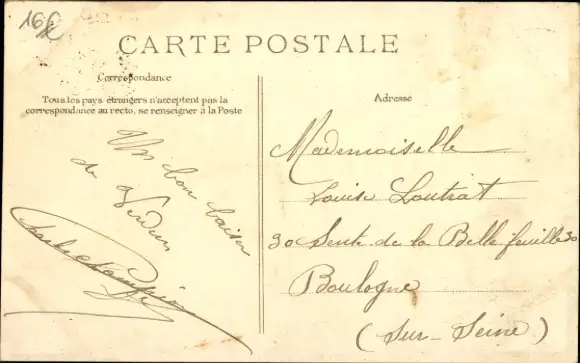 16€
CARTE POSTALE
Correspondance
Tous les pays étrangers n'acceptent pas la
correspondance au recto, se renseigner à la Poste
Un bon baiser
de Verdun
Adresse
Mademoiselle
Louise Loutrat
30 Sente de la Belle feuille 30
Boulogne
(Sur-Seine)